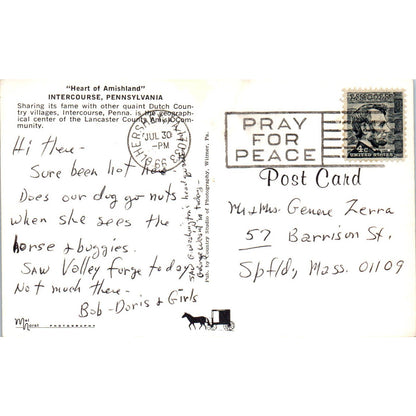 "Heart of Amishland"
INTERCOURSE, PENNSYLVANIA
Sharing its fame with other quaint Dutch Coun-
try villages, Intercourse, Penna. is the geograph-
ical center of the Lancaster County Amish Com-
munity.
HERSHEY
JUL 30
-PM
PRAY
FOR
PEACE
4c
UNITED STATES
Post Card
Hi There-
Sure been hot here
Does our dog go nuts-
when she sees the
horse & buggies.
Saw Valley forge today.
Not much there-
Bob-Doris & Girls
Saw Washington's head
Pub. by Country Studio of Photography, Witmer, Pa.
Mr & Mrs. Gene Zerra
57 Barrison St,
Spfld, Mass. 01109
Mel Horst PHOTOGRAPHY